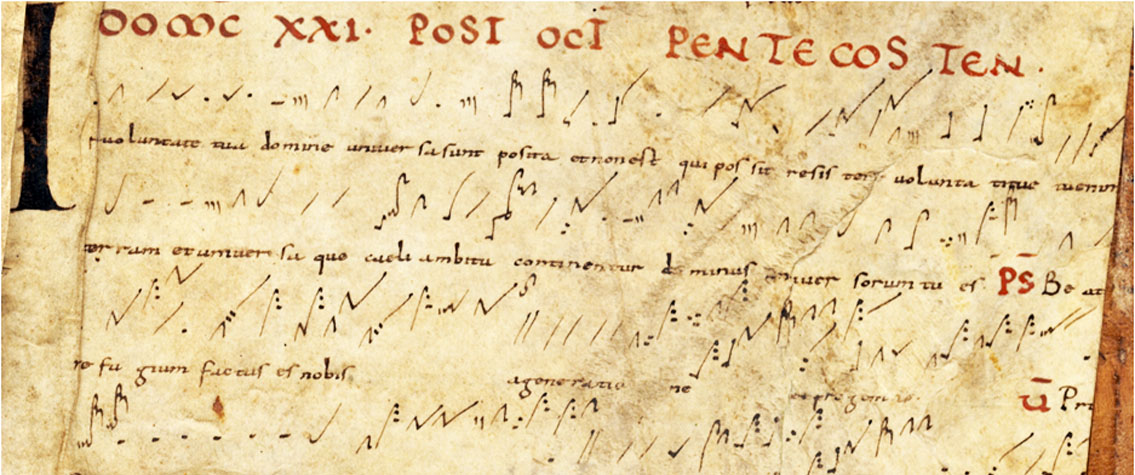 I
DOMC XXI. POST OCT PENTECOSTEN.
voluntate tua domine univer sa sunt posita et non est qui pos sit resis tere volunta
ter ram et univer sa que caeli ambitu continentur dominus univer sorum tu es PS Be at
re fu gium factus es nobis a generatio ne et progenie U Pri